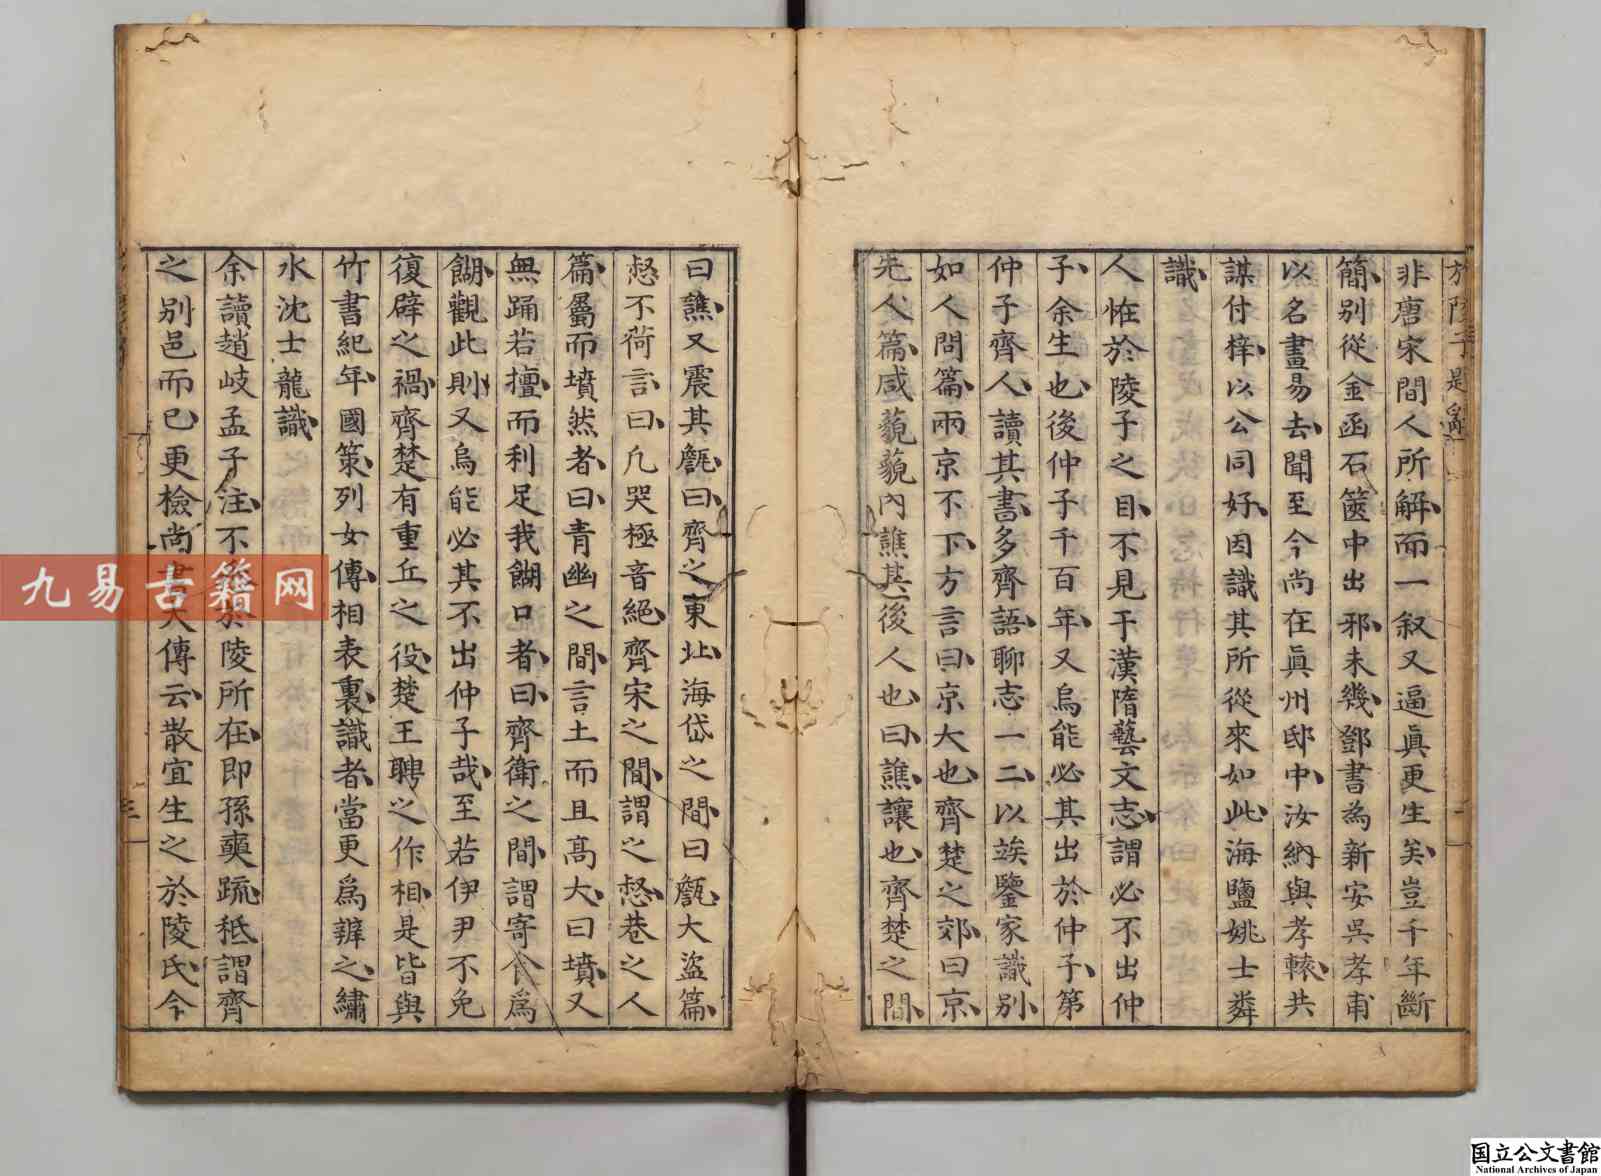 非唐宋間人所解而一叙又逼眞更生美豈千年斷
簡別從金函石篋中出邪未幾鄧書為新安吳孝甫
以名畫易去聞至今尚在眞州邸中汝納與孝轅共
謀付梓以公同好因識其所從來如此海鹽姚士粦
識
人恠於陵子之目不見于漢隋藝文志謂必不出仲
子余生也後仲子千百年又烏能必其出於仲子第
仲子齊人讀其書多齊語聊志一二以竢鑒家識別
如人問篇兩京不下方言曰京大也齊楚之郊曰京
先人篇咸藐藐內譙其後人也曰譙讓也齊楚之間
曰譙又震其甂曰齊之東北海岱之間曰甂大盜篇
惄不荷言曰凡哭極音絕齊宋之間謂之惄巷之人
篇屬而墳然者曰青幽之間言土而且高大曰墳又
無踊若擅而利足我餬口者曰齊衛之間謂寄食爲
餬觀此則又烏能必其不出仲子哉至若伊尹不免
復辟之禍齊楚有重丘之役楚王聘之作相是皆與
竹書紀年國策列女傳相表裏識者當更爲辦之繡
水沈士龍識
余讀趙岐孟子注不
於陵所在即孫奭疏秪謂齊
之別邑而已更檢尚書大傳云散宜生之於陵氏今
九易古籍网
国立公文書館
National Archives of Japan